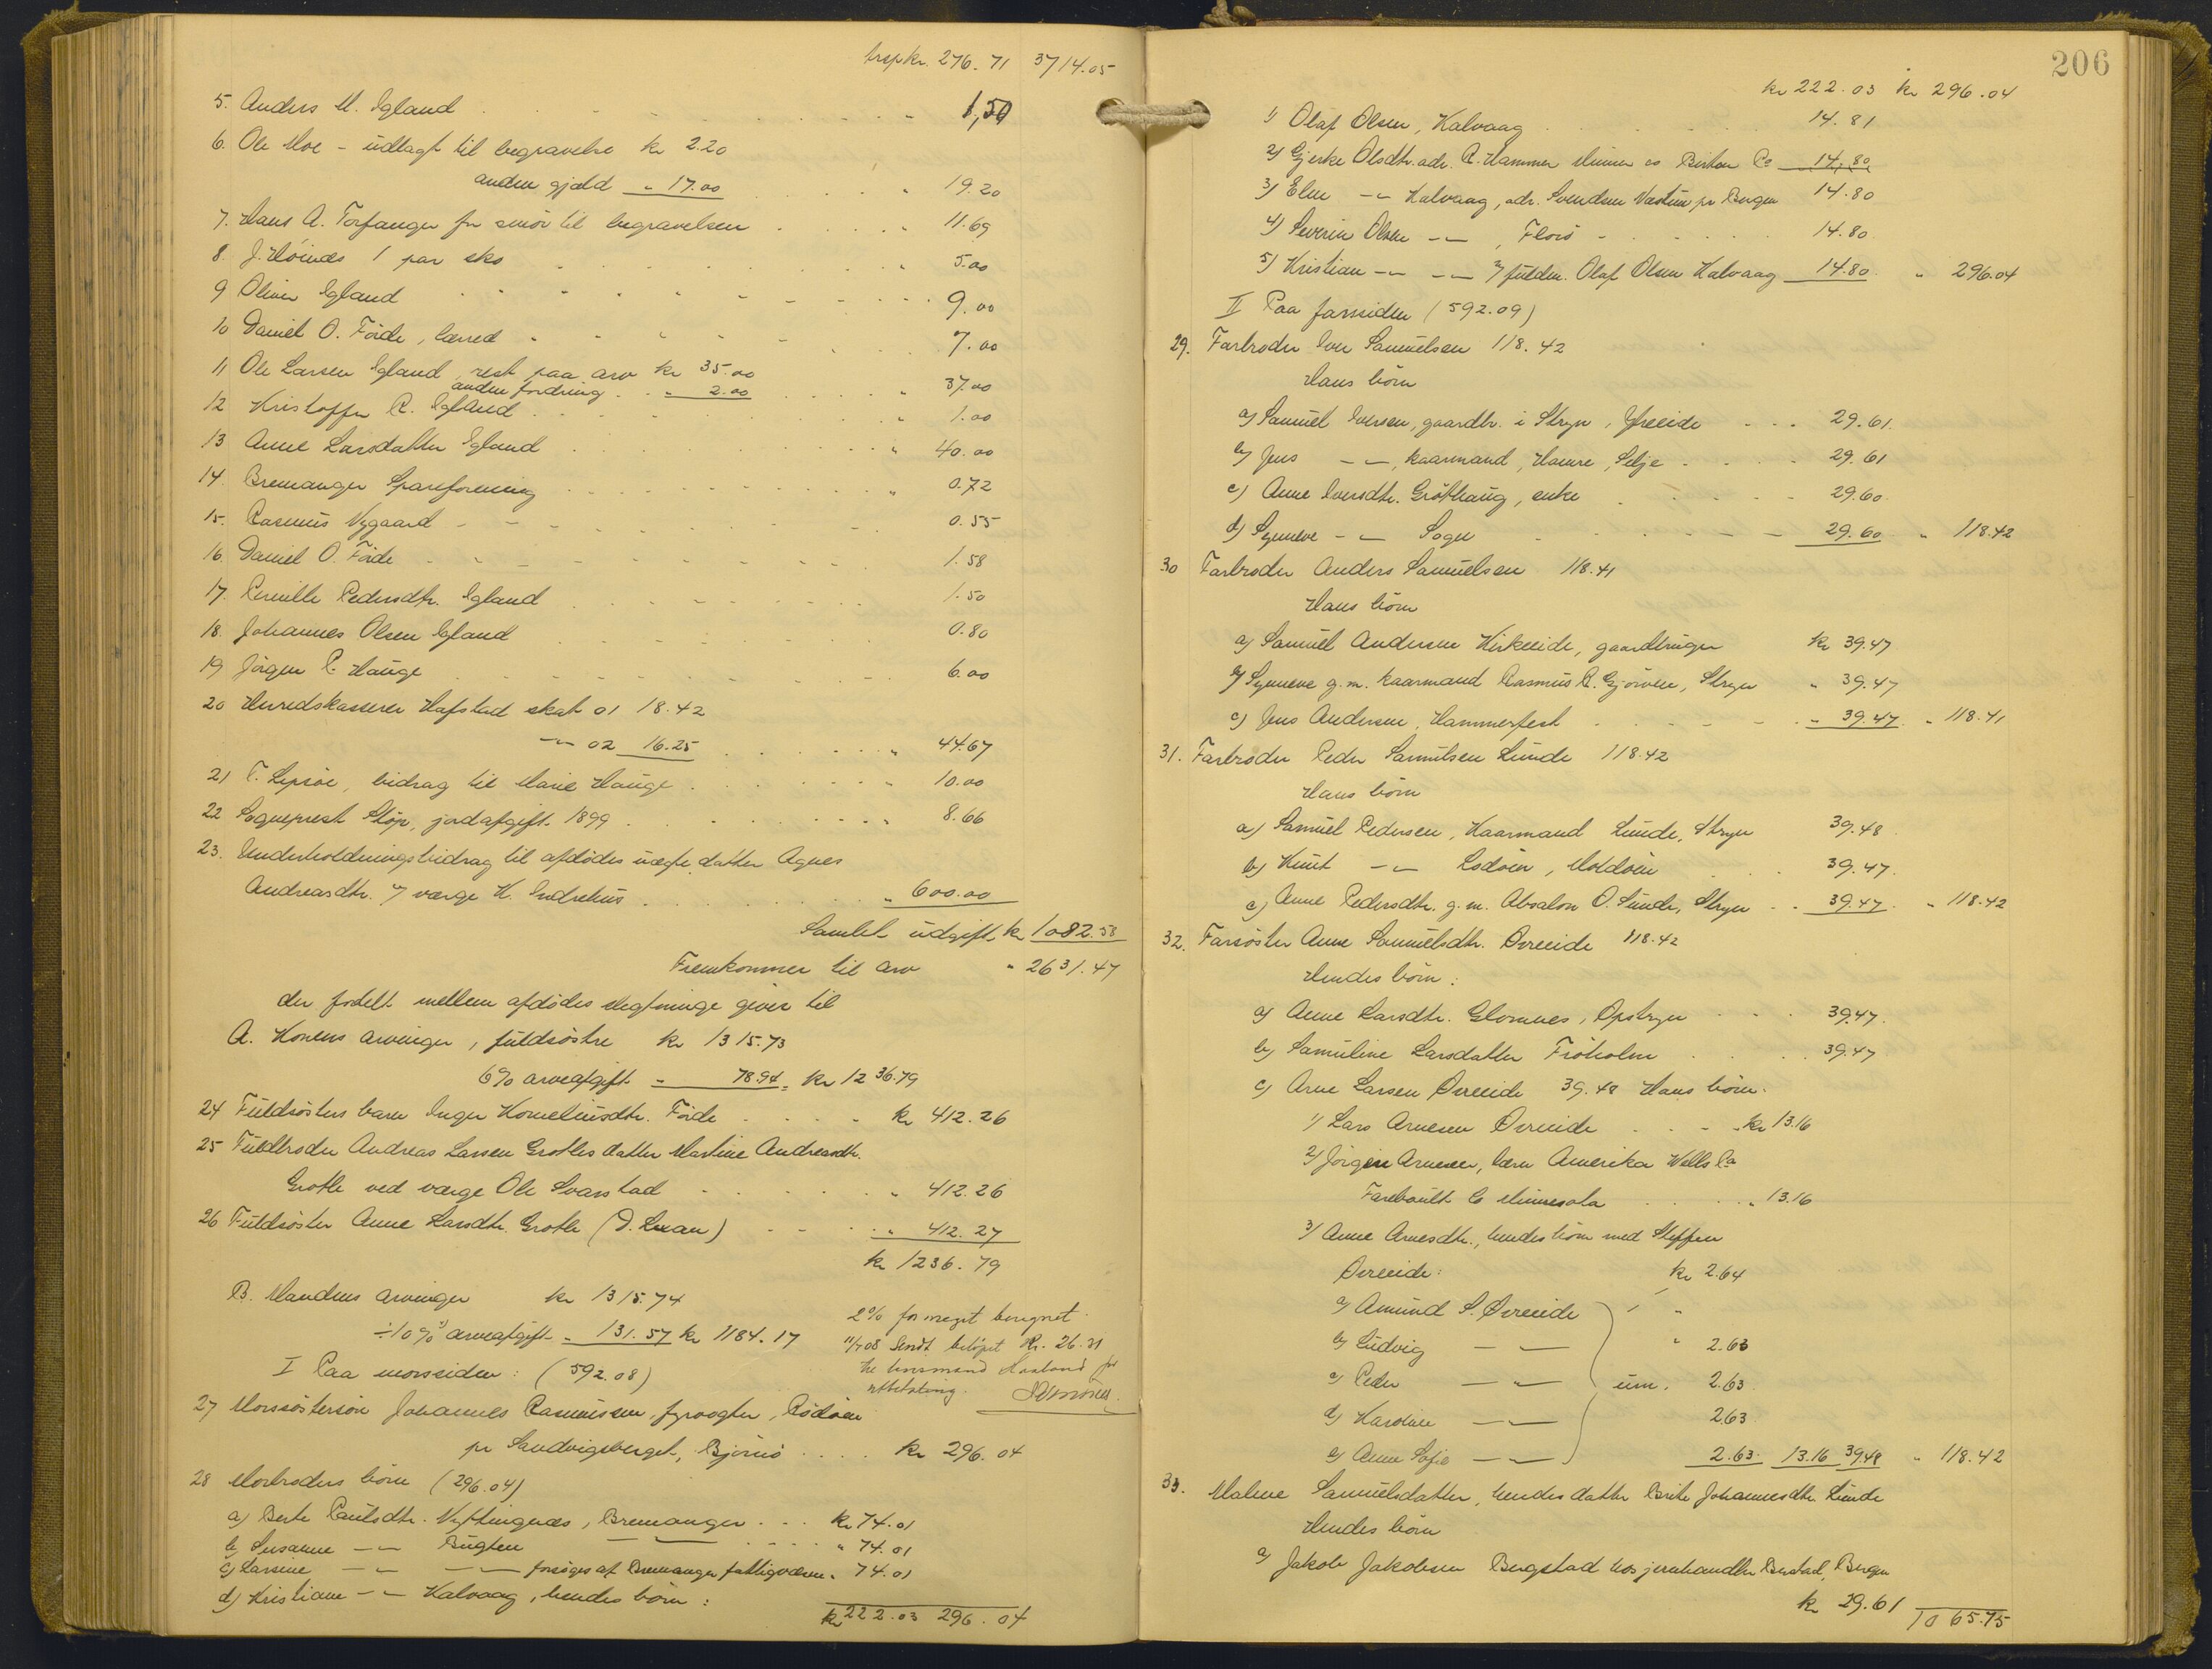 trsp kr. 276.71 3714.05
5. Anders M. Igland 1,50
6. Ole Moe - udlagt til begravelse kr 2.20
anden gjæld " 17.00 " 19.20
7. Hans A. Torfanger for smör til begravelsen 11.69
8. J. Höinæs 1 par sko " 5.00
9 Oliver Igland 9.00
10 Daniel O. Förde, lærred 7.00
11 Ole Larsen Igland, rest paa arv kr 35.00
anden fordring " 2.00 " 37.00
12 Kristoffer R. Igland " 1.00
13 Anne Larsdatter Igland " 40.00
14 Bremanger Spareforening " 0.72
15. Rasmus Nygaard 0.55
16 Daniel O. Förde 1.58
17. Pernille Pedersdtr. Igland 1.50
18. Johannes Olsen Igland 0.80
19 Jörgen P. Hauge 6.00
20 Herredskasserer Hafstad skat 01 18.42
-"- 02 16.25 " 44.67
21 T. Lepsöe, bidrag til Marie Hauge " 10.00
22 Sogneprest Stöp, jordafgift 1899 " 8.66
23. Underholdningsbidrag til afdödes uægte datter Agnes
Andreasdtr. v/ værge K. Indrehus " 600.00
Samlet udgift kr 1082.58
Fremkommer til arv " 2631.47
der fordelt mellem afdödes slegtninge giver til
A. Konens arvinger, fuldsöstre kr 1315.73
6% arveafgift - 78.94 = kr 1236.79
24 Fuldsösters barn Inger Korneliusdtr. Förde kr 412.26
25 Fuldbroder Andreas Larsen Grotles datter Martine Andreasdtr.
Grotle ved værge Ole Svarstad " 412.26
26 Fuldsöster Anne Larsdtr. Grotle (D. Luan) " 412.27
kr 1236.79
B. Mandens arvinger kr 1315.74
÷ 10% arveafgift " 131.57 kr 1184.17
2% for meget beregnet
11/7 08 Sendt belöpet Kr. 26.31
he lensmand Haaland for
utbetaling.
I Paa morssiden: (592.08)
27 Morssöstersön Johannes Rasmussen, fyrvogter, Rödöen
pr Sandvigsberget, Björnö kr 296.04
28 Morbroders börn (296.04)
a) Berte Paulsdtr. Nyttingnæs, Bremanger kr 74.01
b) Susanne -"- Bugten -"- " 74.01
c) Larsine -"- -"- forsörges af Bremanger fattigvæsen " 74.01
d) Kristiane -"- Kalvaag, hendes börn:
kr 222.03 296.04
206
kr 222.03 kr 296.04
1) Olaf Olsen, Kalvaag 14.81
2) Gjerke Olsdtr. adr. R. Hammer Minner co Co 14.80
3) Elen -"- Kalvaag, adr. Svendsen pr Bergen 14.80
4) Severin Olsen -"-, Florö 14.80
5) Kristian -"- -"- v/ fuldm. Olaf Olsen Kalvaag 14.80 " 296.04
II Paa farssiden (592.09)
29. Farbroder Iver Samuelsen 118.42
Hans börn
a) Samuel Iversen, gaardbr. i Stryn, Ytreeide 29.61
b) Jens -"-, kaarmand, Hamre, Selje 29.61
c) Anne Iversdtr. Gröthaug, enke 29.60
d) Synneve -"- Sogn 29.60 " 118.42
30 Farbroder Anders Samuelsen 118.41
Hans börn
a) Samuel Andersen Kirkeeide, gaardbruger kr 39.47
b) Synneve g.m. kaarmand Rasmus R. Gjörven, Stryn " 39.47
c) Jens Andersen, Hammerfest " 39.47 " 118.41
31. Farbroder Peder Samuelsen Lunde 118.42
Hans börn
a) Samuel Pedersen, Kaarmand Lunde, Stryn 39.48
b) Knut -"- Lodöen, Moldöen 39.47
c) Anne Pedersdtr. g.m. Absalon O. Lunde, Stryn 39.47 " 118.42
32. Farsöster Anne Samuelsdtr. Övreeide 118.42
Hendes börn:
a) Anne Larsdtr. Glomnes, Opstryn 39.47
b) Samuline Larsdatter Fröholm 39.47
c) Arne Larsen Övreeide 39.48 Hans börn.
1) Lars Arnesen Övreeide kr 13.16
2) Jörgen Arnesen, Amerika Wells Pa
Faribault Co Minnesota " 13.16
3) Anne Arnesdtr., hendes börn med Steffen
Övreeide: kr 2.64
a) Amund S. Övreeide
b) Ludvig -"- " 2.63
c) Peder -"- um. 2.63
d) Karoline -"- 2.63
e) Anne Sofie -"- 2.63 13.16 39.48 " 118.42
33. Malene Samuelsdatter, hendes datter Brite Johannesdtr. Lunde
Hendes börn
a) Jakob Jakobsen Bergstad hos jernhandler Berstad, Bergen
kr 29.61 1065.75